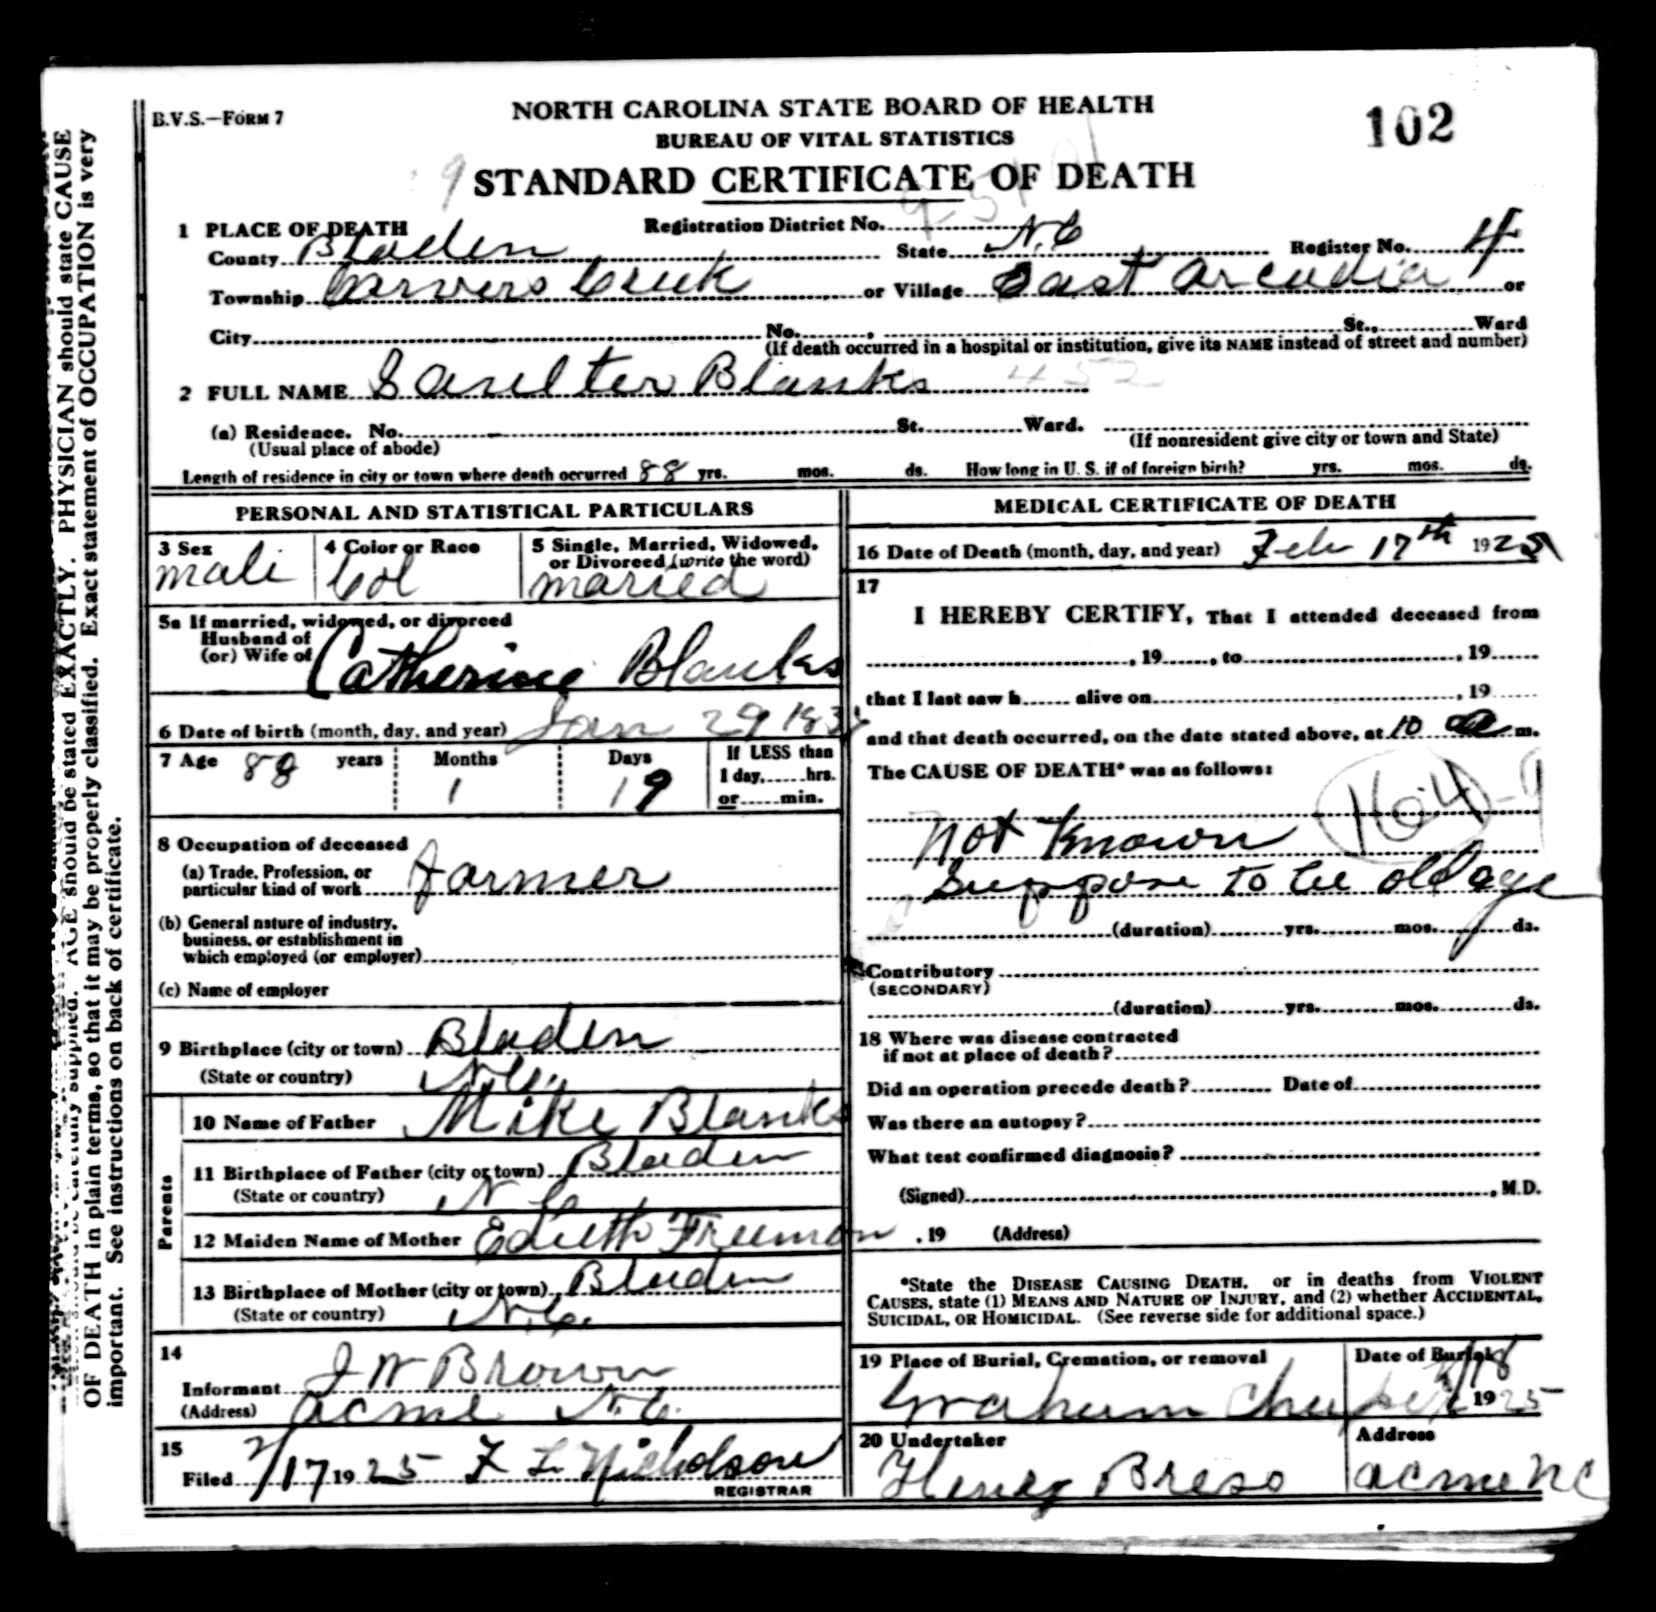 B.V.S.—FORM 7
NORTH CAROLINA STATE BOARD OF HEALTH
BUREAU OF VITAL STATISTICS
102
9 STANDARD CERTIFICATE OF DEATH
1 PLACE OF DEATH Registration District No.
County Bladen State N.C Register No. 4
Township Carvers Creek or Village East Arcadia or
City No. , St., Ward
(If death occurred in a hospital or institution, give its NAME instead of street and number)
2 FULL NAME Blanks 452
(a) Residence. No. St. Ward.
(Usual place of abode) (If nonresident give city or town and State)
Length of residence in city or town where death occurred 88 yrs. mos. ds. How long in U. S. if of foreign birth? yrs. mos. ds.
PERSONAL AND STATISTICAL PARTICULARS
3 Sex 4 Color or Race 5 Single, Married, Widowed,
or Divorced (write the word)
male Col married
5a If married, widowed, or divorced
Husband of
(or) Wife of Catherine Blanks
6 Date of birth (month, day, and year) Jan 29 183
7 Age 88 years Months 1 Days 19 If LESS than
1 day, hrs.
or min.
8 Occupation of deceased
(a) Trade, Profession, or
particular kind of work farmer
(b) General nature of industry,
business, or establishment in
which employed (or employer)
(c) Name of employer
9 Birthplace (city or town) Bladen
(State or country) N.C.
Parents
10 Name of Father Mike Blanks
11 Birthplace of Father (city or town) Bladen
(State or country) N C
12 Maiden Name of Mother Edieth Freeman
13 Birthplace of Mother (city or town) Bladen
(State or country) N.C.
14
Informant J W Brown
(Address) acme N.C.
15
Filed 2/17 1925 F L Nicholson
REGISTRAR
MEDICAL CERTIFICATE OF DEATH
16 Date of Death (month, day, and year) Feb 17th 1925
17
I HEREBY CERTIFY, That I attended deceased from
, 19 , to , 19
that I last saw h alive on , 19
and that death occurred, on the date stated above, at 10 a m.
The CAUSE OF DEATH* was as follows:
164
Not Known
Suppose to be old age
(duration) yrs. mos. ds.
Contributory
(SECONDARY)
(duration) yrs. mos. ds.
18 Where was disease contracted
if not at place of death?
Did an operation precede death? Date of
Was there an autopsy?
What test confirmed diagnosis?
(Signed) , M.D.
, 19 (Address)
*State the DISEASE CAUSING DEATH, or in deaths from VIOLENT
CAUSES, state (1) MEANS AND NATURE OF INJURY, and (2) whether ACCIDENTAL,
SUICIDAL, OR HOMICIDAL. (See reverse side for additional space.)
19 Place of Burial, Cremation, or removal Date of Burial
Graham Chapel 2/18 1925
20 Undertaker Address
Henry acme NC
AGE should be stated EXACTLY. PHYSICIAN should state CAUSE
OF DEATH in plain terms, so that it may be properly classified. Exact statement of OCCUPATION is very
important. See instructions on back of certificate.